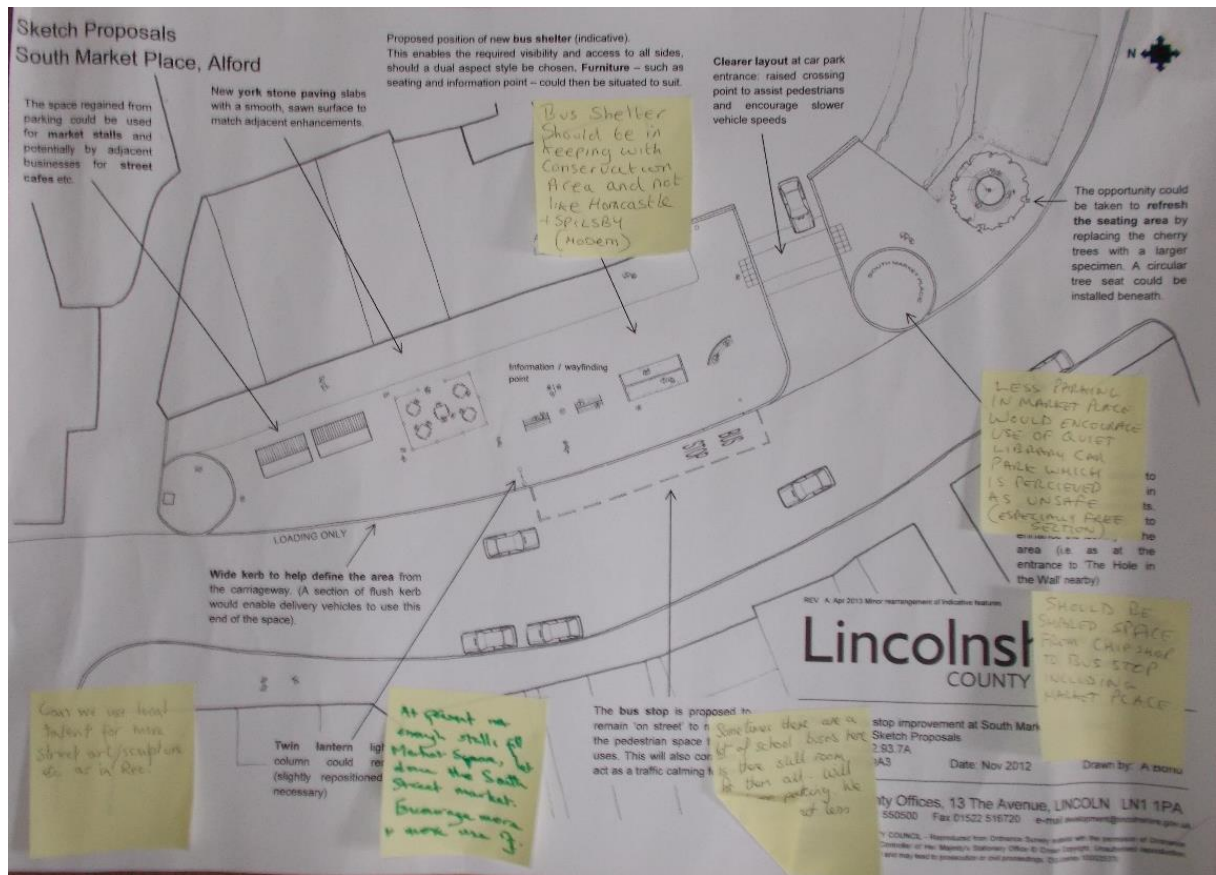 Sketch Proposals
South Market Place, Alford
The space regained from
parking could be used
for market stalls and
potentially by adjacent
businesses for street
cafes etc.
New york stone paving slabs
with a smooth, sawn surface to
match adjacent enhancements.
Proposed position of new bus shelter (indicative).
This enables the required visibility and access to all sides,
should a dual aspect style be chosen. Furniture – such as
seating and information point – could then be situated to suit.
Bus Shelter
Should be in
keeping with
Conservation
Area and not
like Horncastle
+ SPILSBY
(MODERN)
Clearer layout at car park
entrance: raised crossing
point to assist pedestrians
and encourage slower
vehicle speeds
N
The opportunity could
be taken to refresh
the seating area by
replacing the cherry
trees with a larger
specimen. A circular
tree seat could be
installed beneath.
SOUTH MARKET PLACE
Information / wayfinding
point
BUS
STOP
LOADING ONLY
LESS PARKING
IN MARKET PLACE
WOULD ENCOURAGE
USE OF QUIET
LIBRARY CAR
PARK WHICH
IS PERCIEVED
AS UNSAFE
(ESPECIALLY FREE
SECTION)
to
in
ts.
to
he
area (i.e. as at the
entrance to 'The Hole in
the Wall' nearby)
Wide kerb to help define the area from
the carriageway. (A section of flush kerb
would enable delivery vehicles to use this
end of the space).
REV A: Apr 2013 Minor rearrangement of indicative features
Lincolnsh
COUNTY
SHOULD BE
SHARED SPACE
FROM CHIPSHOP
TO BUS STOP
INCLUDING
MARKET PLACE
Can we use local
talent for more
street art/sculpture
etc as in Rec!
Twin lantern ligh
column could re
(slightly repositioned
necessary)
At present not
enough stalls fill
Market Square, let
alone the South
Street market.
Encourage more
+ more use of.
The bus stop is proposed to
remain 'on street' to
the pedestrian space
uses. This will also con
act as a traffic calming
Sometimes there are a
lot of school buses here
is there still room
for them all - will
parking be
set less
stop improvement at South Mar
Sketch Proposals
2.93.7A
A3 Date: Nov 2012 Drawn by:
ty Offices, 13 The Avenue, LINCOLN LN1 1PA
550500 Fax 01522 516720